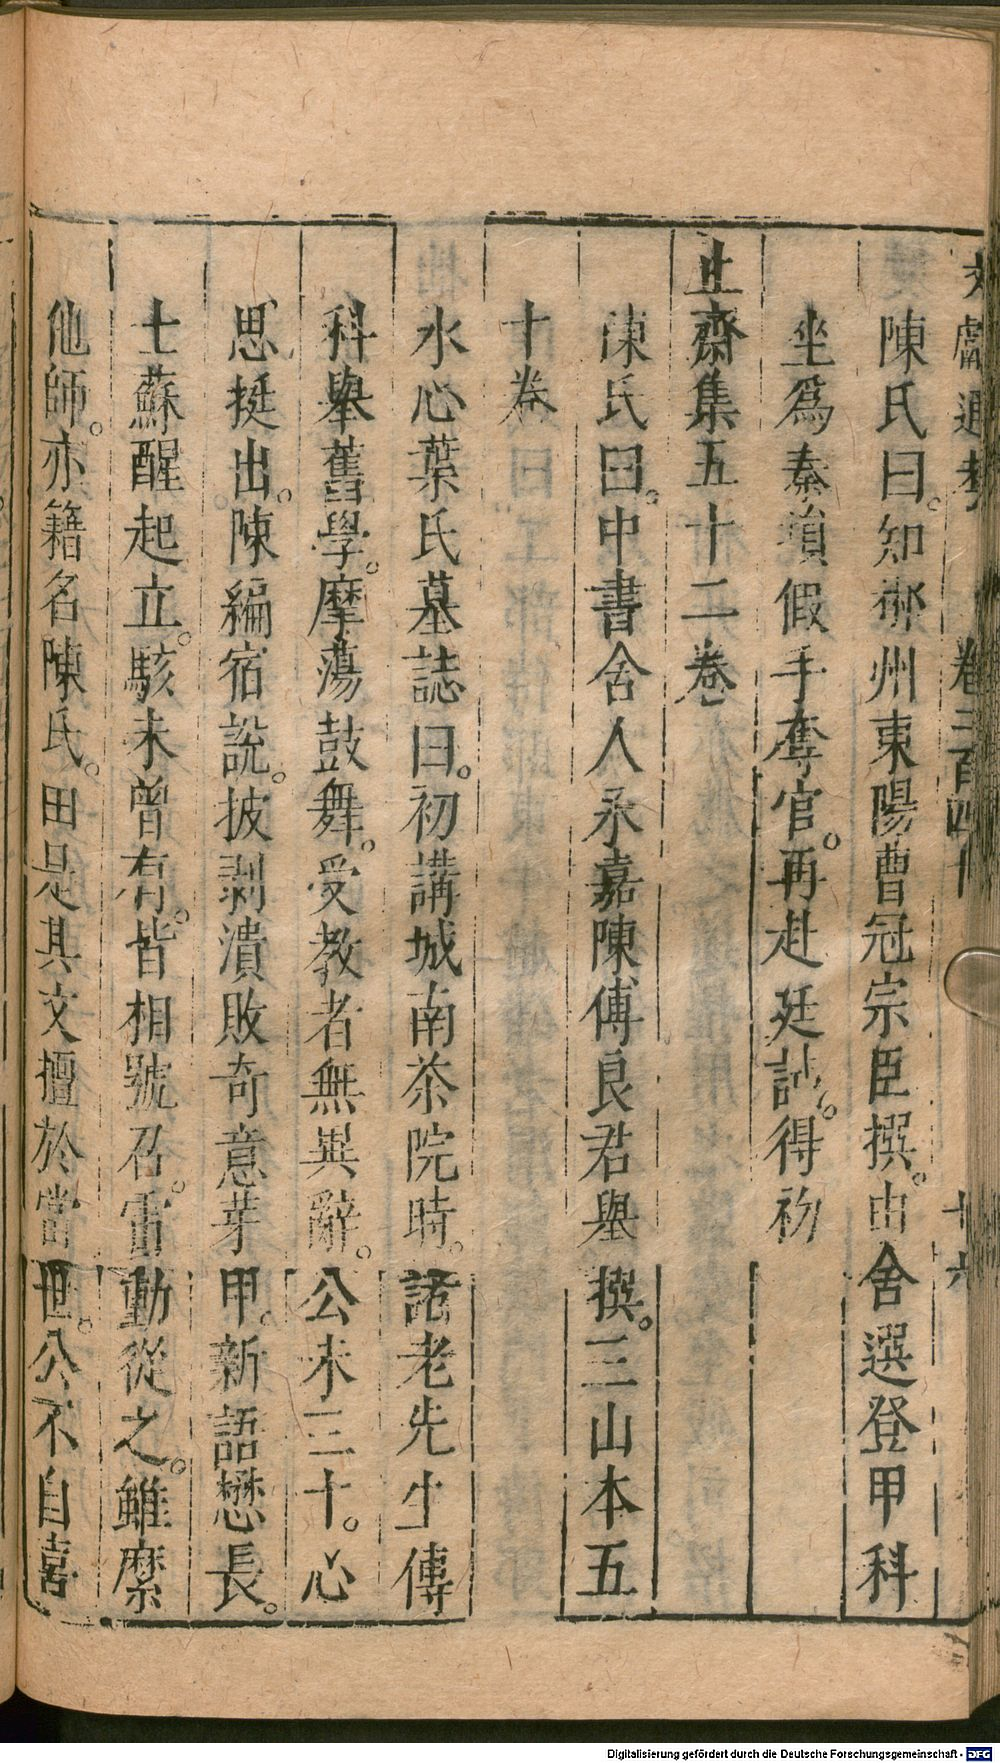 文獻通考 卷二百四十 十六
陳氏曰。知郴州東陽曹冠宗臣撰。由舍選登甲科
坐爲秦塤假手奪官。再赴廷試。得初
止齋集五十二卷
陳氏曰。中書舍人永嘉陳傅良君舉撰。三山本五
十卷
水心葉氏墓誌曰。初講城南茶院時。諸老先生傳
科舉舊學。摩蕩鼓舞。受教者無異辭。公未三十。心
思挺出。陳編宿說。披剥潰敗奇意芽甲。新語懋長。
士蘇醒起立。駭未曾有。皆相號召。雷動從之。雖縻
他師。亦籍名陳氏。由是其文擅於當世。公不自喜
Digitalisierung gefördert durch die Deutsche Forschungsgemeinschaft - DFG